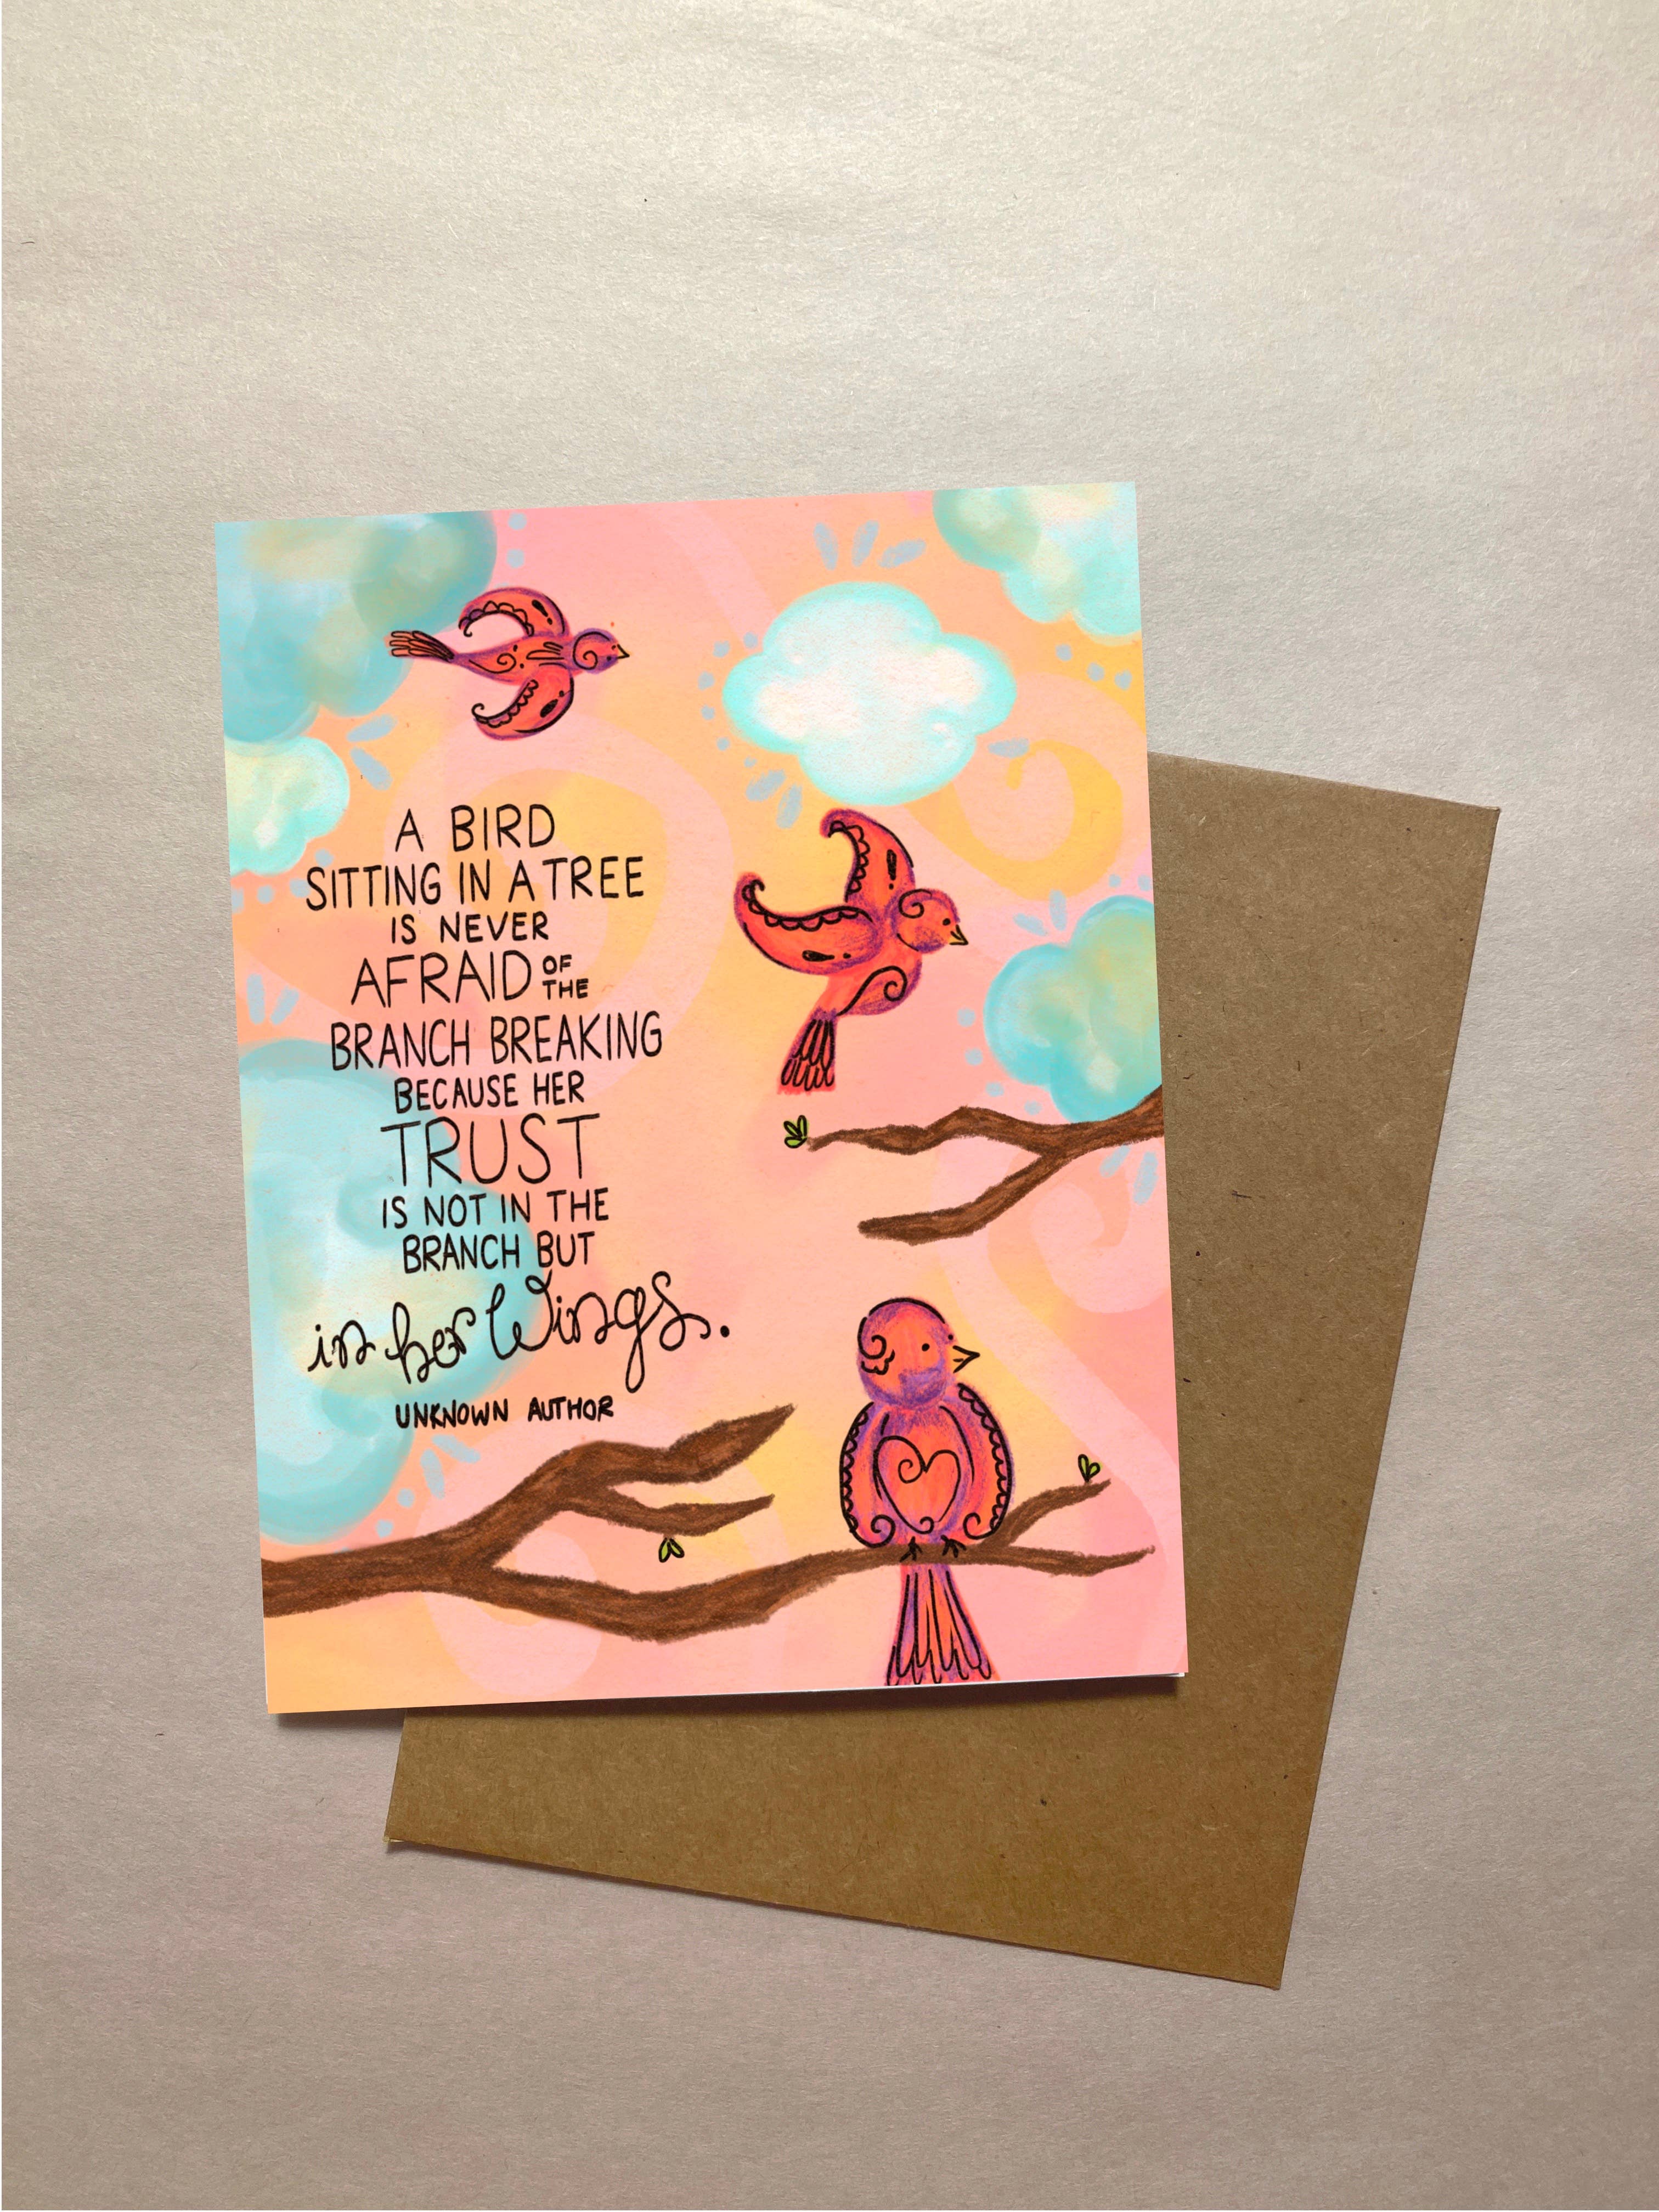 A BIRD
SITTING IN A TREE
IS NEVER
AFRAID OF THE
BRANCH BREAKING
BECAUSE HER
TRUST
IS NOT IN THE
BRANCH BUT
in her Wings.
UNKNOWN AUTHOR